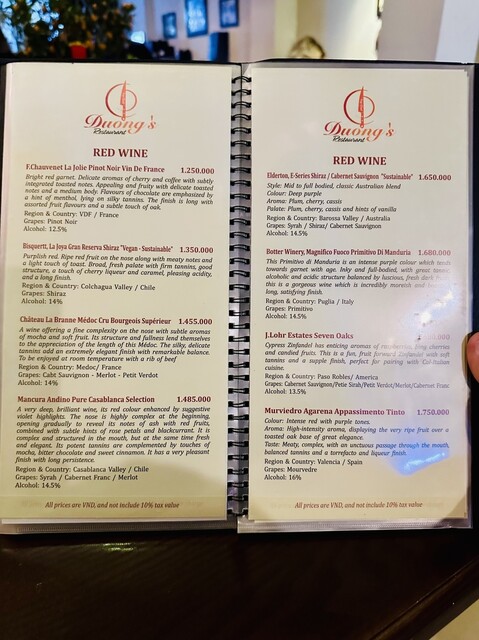 Duong's
Restaurant
RED WINE
F.Chauvenet La Jolie Pinot Noir Vin De France 1.250.000
Bright red garnet. Delicate aromas of cherry and coffee with subtly
integrated toasted notes. Appealing and fruity with delicate toasted
notes and a medium body. Flavours of chocolate are emphasized by
a hint of menthol, lying on silky tannins. The finish is long with
assorted fruit flavours and a subtle touch of oak.
Region & Country: VDF / France
Grapes: Pinot Noir
Alcohol: 12.5%
Bisquertt, La Joya Gran Reserva Shiraz "Vegan - Sustainable" 1.350.000
Purplish red. Ripe red fruit on the nose along with meaty notes and
a light touch of toast. Broad, fresh palate with firm tannins, good
structure, a touch of cherry liqueur and caramel, pleasing acidity,
and a long finish.
Region & Country: Colchagua Valley / Chile
Grapes: Shiraz
Alcohol: 14%
Château La Branne Médoc Cru Bourgeois Supérieur 1.455.000
A wine offering a fine complexity on the nose with subtle aromas
of mocha and soft fruit. Its structure and fullness lend themselves
to the appreciation of the length of this Médoc. The silky, delicate
tannins add an extremely elegant finish with remarkable balance.
To be enjoyed at room temperature with a rib of beef
Region & Country: Medoc/ France
Grapes: Cabt Sauvignon - Merlot - Petit Verdot
Alcohol: 14%
Mancura Andino Pure Casablanca Selection 1.485.000
A very deep, brilliant wine, its red colour enhanced by suggestive
violet highlights. The nose is highly complex at the beginning,
opening gradually to reveal its notes of ash with red fruits,
combined with subtle hints of rose petals and blackcurrant. It is
complex and structured in the mouth, but at the same time fresh
and elegant. Its potent tannins are complemented by touches of
mocha, bitter chocolate and sweet cinnamon. It has a very pleasant
finish with long persistence.
Region & Country: Casablanca Valley / Chile
Grapes: Syrah / Cabernet Franc / Merlot
Alcohol: 14.5%
All prices are VND, and not include 10% tax value
Duong's
Restaurant
RED WINE
Elderton, E-Series Shiraz / Cabernet Sauvignon "Sustainable" 1.650.000
Style: Mid to full bodied, classic Australian blend
Colour: Deep purple
Aroma: Plum, cherry, cassis
Palate: Plum, cherry, cassis and hints of vanilla
Region & Country: Barossa Valley / Australia
Grapes: Syrah / Shiraz / Cabernet Sauvignon
Alcohol: 14.5%
Botter Winery, Magnifico Fuoco Primitivo Di Manduria 1.680.000
This Primitivo di Manduria is an intense purple colour which tends
towards garnet with age. Inky and full-bodied, with great
alcoholic and acidic structure balanced by luscious, fresh dark
this is a gorgeous wine which is incredibly moreish and
long, satisfying finish.
Region & Country: Puglia / Italy
Grapes: Primitivo
Alcohol: 14.5%
J.Lohr Estates Seven Oaks
Cypress Zinfandel has enticing aromas of cherries
and candied fruits. This is a fun, fruit forward Zinfandel with soft
tannins and a supple finish, perfect for pairing with
cuisine.
Region & Country: Paso Robles/ America
Grapes: Cabernet Sauvignon/Petie Sirah/Petit Verdot/Merlot/Cabernet Franc
Alcohol: 13.5%
Murviedro Agarena Appassimento Tinto 1.750.000
Colour: Intense red with purple tones.
Aroma: High-intensity aroma, displaying the very ripe fruit over a
toasted oak base of great elegance.
Taste: Meaty, complex, with an unctuous passage through the mouth,
balanced tannins and a torrefacto and liqueur finish.
Region & Country: Valencia / Spain
Grapes: Mourvedre
Alcohol: 16%
All prices are VND, and not include 10% tax value